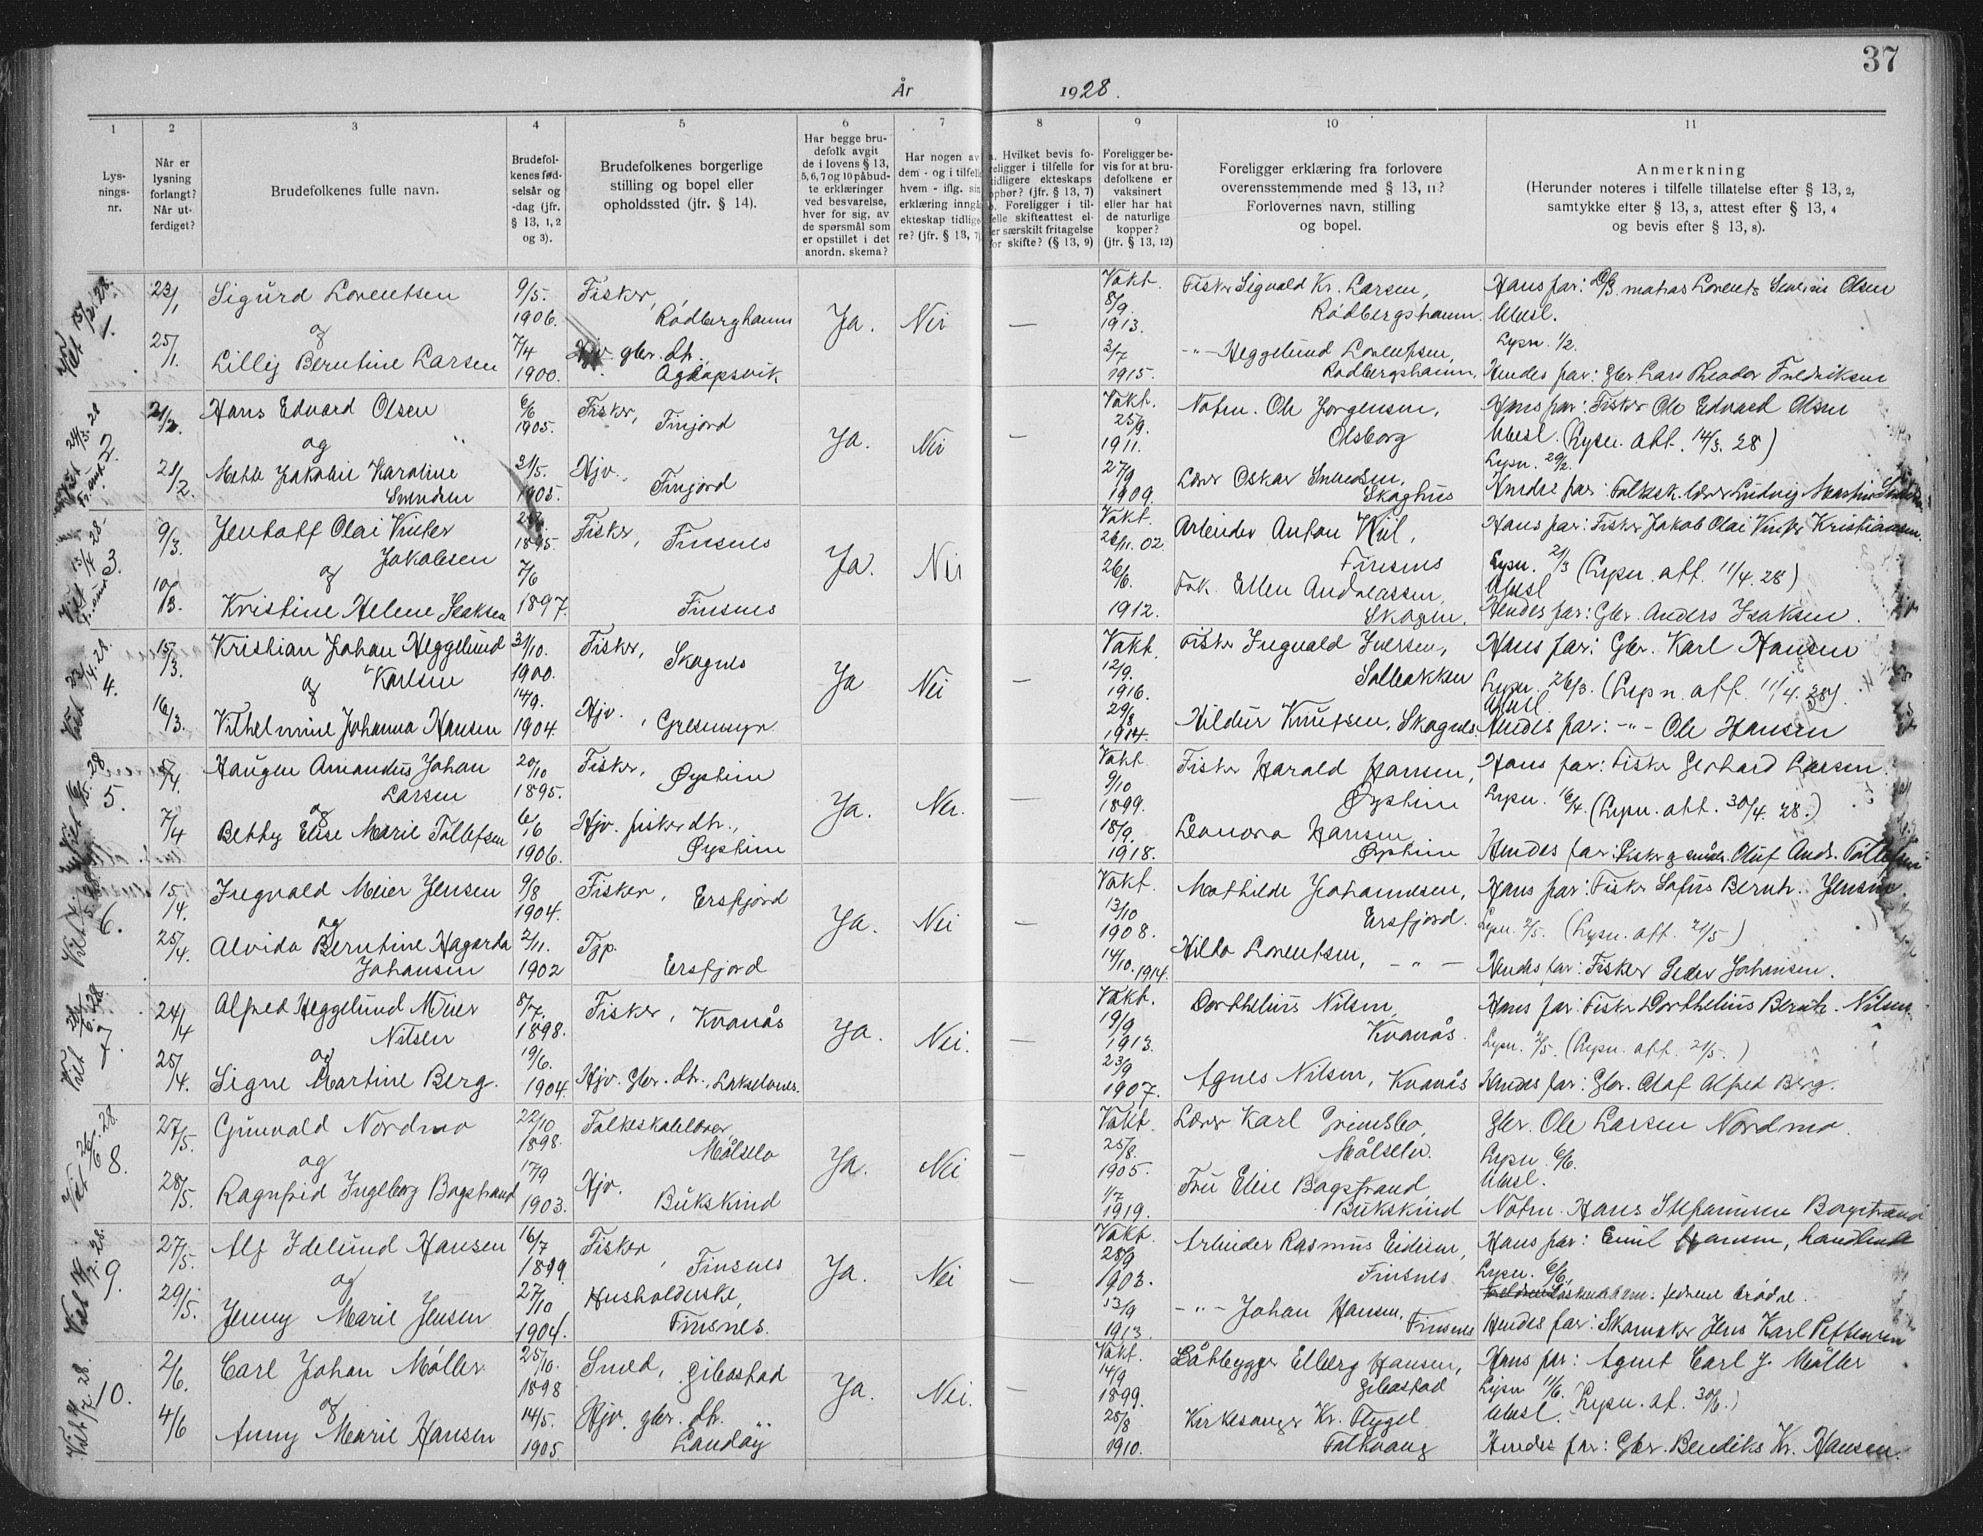 37
År 1928.
1 2 3 4 5 6 7 8 9 10 11
Lysningsnr.
Når er lysning forlangt? Når utferdiget?
Brudefolkenes fulle navn.
Brudefolkenes fødselsår og -dag (jfr. § 13, 1, 2 og 3).
Brudefolkenes borgerlige stilling og bopel eller opholdssted (jfr. § 14).
Har begge brudefolk avgit de i lovens § 13, 5, 6, 7 og 10 påbudte erklæringer ved besvarelse, hver for sig, av de spørsmål som er opstillet i det anordn. skema?
Har nogen av dem - og i tilfelle hvem - iflg. sin erklæring inngå ekteskap tidligere? (jfr. § 13, 7)
a. Hvilket bevis foreligger i tilfelle for tidligere ekteskaps ophør? (jfr. § 13, 7)
b. Foreligger i tilfelle skifteattest eller særskilt fritagelse for skifte? (§ 13, 9)
Foreligger bevis for at brudefolkene er vaksinert eller har hat de naturlige kopper? (jfr. § 13, 12)
Foreligger erklæring fra forlovere overensstemmende med § 13, 11? Forlovernes navn, stilling og bopel.
Anmerkning (Herunder noteres i tilfelle tillatelse efter § 13, 2, samtykke efter § 13, 3, attest efter § 13, 4 og bevis efter § 13, 8).
1.
23/1 Sigurd Lorentsen 9/5. 1906. Fisker, Rödberghamn Ja. Nei — Vakt. 8/9. 1913. Fisker Sigvald Kr. Larsen, Rödbergshamn. Hans far: Lorents Olsen
og Utlysn. Lysn. 1/2.
25/1. Lilly Berntine Larsen 7/4 1900. Hjv. gbr. dtr. Aglapsvik 3/7 1915. -"- Heggelund Lorentsen, Rödbergshamn. Hendes far: Gbr. Lars Theodor Fredriksen
2.
21/2. Hans Edvard Olsen 6/6 1905. Fisker, Finjord Ja. Nei — Vakt. 25/9. 1911. Notm. Ole Jörgensen, Olsborg Hans far: Fisker Ole Edvard Olsen
og (Lysn. att. 14/3. 28) Lysn. 29/2.
21/2. Mette Jakobie Karoline Svendsen 31/5. 1905. Hjv. Finjord 27/9 1909. Lærer Oskar Svendsen, Skoghus Hendes far: Folkesk. lærer Ludvig Martin
3.
9/3. Jentoft Olai Vinter Jakobsen 1895. Fisker, Finsnes Ja. Nei Vakt. 26/11. 02. Arbeider Anton Kiil, Finsnes Hans far: Fisker Jakob Olai Vinter Kristiansen.
og Lysn. 21/3 (Lysn. att. 11/4. 28)
10/3. Kristine Helene Isaksen 7/6 1897. Finsnes 26/6. 1912. Frk. Ellen Andreassen, Skogen. Hendes far: Gbr. Anders Isaksen.
4.
15/3. Kristian Johan Heggelund Karlsen 31/10. 1900. Fisker, Skognes Ja Nei — Vakt. 12/9. 1916. Fisker Ingvald Iversen, Solbakken Hans far: Gbr. Karl Hansen
og Lysn. 26/3. (Lysn. att. 11/4. 28).
16/3. Vilhelmine Johanna Hansen 14/9. 1904 Hjv., Gresmyr 29/8 1914. Hildur Knutsen, Skognes. Hendes far: -"- Ole Hansen
5.
5/4. Haugen Amandus Johan Larsen 20/10 1895. Fisker, Öyjheim Ja. Nei. — Vakt. 9/10 1899. Fisker Harald Hansen, Hans far: Fisker Gerhard Larsen.
og Lysn. 16/4. (Lysn. att. 30/4. 28.)
7/4 Betty Elise Marie Tollefsen 6/16 1906. Hjv. fisker dtr., 18/9. 1918. Leonora Hansen Hendes far: Fisker og Oluf Andr. Tollefsen
6.
15/4. Ingvald Meier Jensen 9/8 1904. Fisker, Ersfjord Ja. Nei — Vakt. 13/10 1908. Mathilde Johannesen, Ersfjord. Hans far: Fisker Sofus Bernh. Jensen.
og Lysn. 2/5. (Lysn. att. 21/5)
25/4. Alvida Berntine Hagarda Johansen 2/11. 1902 Tjp. Ersfjord 14/10. 1914. Hilda Lorentsen, -"- Hendes far: Fisker Peder Johansen.
7.
24/4 Alfred Heggelund Meier Nilsen 8/7. 1898. Fisker, Kvanås Ja. Nei. — Vakt. 19/9 1913. Dorthelius Nilsen, Kvanås. Hans far: Fisker Dorthelius Bernh. Nilsen
og Lysn. 2/5. (Lysn. att. 21/5.)
25/4. Signe Martine Berg. 19/6. 1904. Hjv. Gbr. dtr., Lakselvnes. 23/9 1907. Agnes Nilsen, Kvanås Hendes far: Gbr. Olaf Alfred Berg.
8.
27/5. Grunvald Nordmo 22/10 1898. Folkeskolelærer, Målselv Ja. Nei — Vakt. 25/8. 1905. Lærer Karl Grimsbo, Målselv. Gbr. Ole Larsen Nordmo.
og Lysn. 6/6.
28/5. Ragnfrid Ingeborg Bogstrand 17/9 1903. Hjv. Bukskind 1/7 1919. Fru Elise Bogstrand, Bukskind Notm. Hans Stefanusen Bogstrand
9.
27/5. Alf Idelund Hansen 16/7 1899. Fisker, Finsnes Ja. Nei — Vakt. 28/9 1903. Arbeider Rasmus Eidum, Finsnes. Hans far: Emil Hansen, handlende
og Lysn. 6/6.
29/5. Jenny Marie Jensen 27/10 1904. Husholderske, Finsnes. 13/9 1913. -"- Johan Hansen, Finsnes Hendes far: Skomaker Jens Karl Pettersen
10.
2/6. Carl Johan Möller 25/10. 1898 Smed, Gibostad Ja. Nei. — Vakt. 14/9 1899. Båtbygger Elberg Hansen, Gibostad Hans far: Agent Carl J. Möller
og Lysn 11/6. (Lysn. at. 30/6.)
4/6 Anny Marie Hansen 14/5. 1905. Hjv. gbr. dtr. Landöy 25/8 1910. Kirkesanger Kr. Flygel Hendes far: Gbr. Bendiks Kr. Hansen.